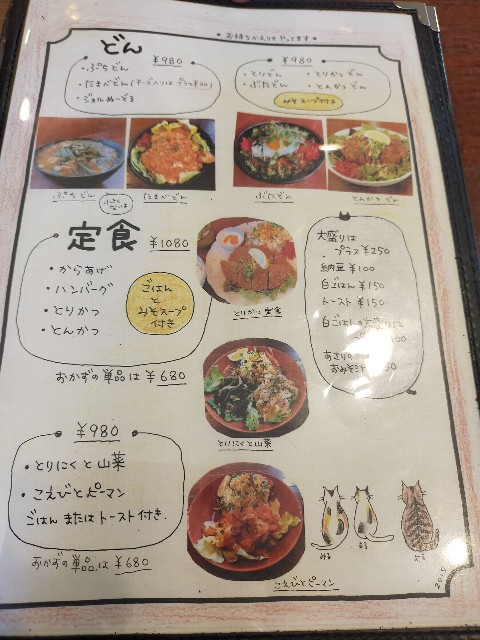 どん
• お持ちかえりもやってます •
¥980
・ぷちどん
・たまべどん(チーズ入りは プラス¥80)
・ジョルぬーどる
¥980
・とりどん ・とりかつ どん
・ぶたどん ・とんかつ どん
みそスープ付き
ぷちどん
たまべどん
ぶたどん
とんかつ どん
定食 ¥1080
・からあげ
・ハンバーグ
・とりかつ
・とんかつ
ごはん
と
みそスープ
付き
おかずの単品は ¥680
とりかつ 定食
大盛りは
・プラス¥250
納豆 ¥100
白ごはん ¥150
トースト ¥150
白ごはんの大盛りは
100
あさりの
おみそ 50
とりにくと山菜
¥980
・とりにくと山菜
・こえびとピーマン
ごはん またはトースト付き.
おかずの単品は ¥680
こえびとピーマン
2015